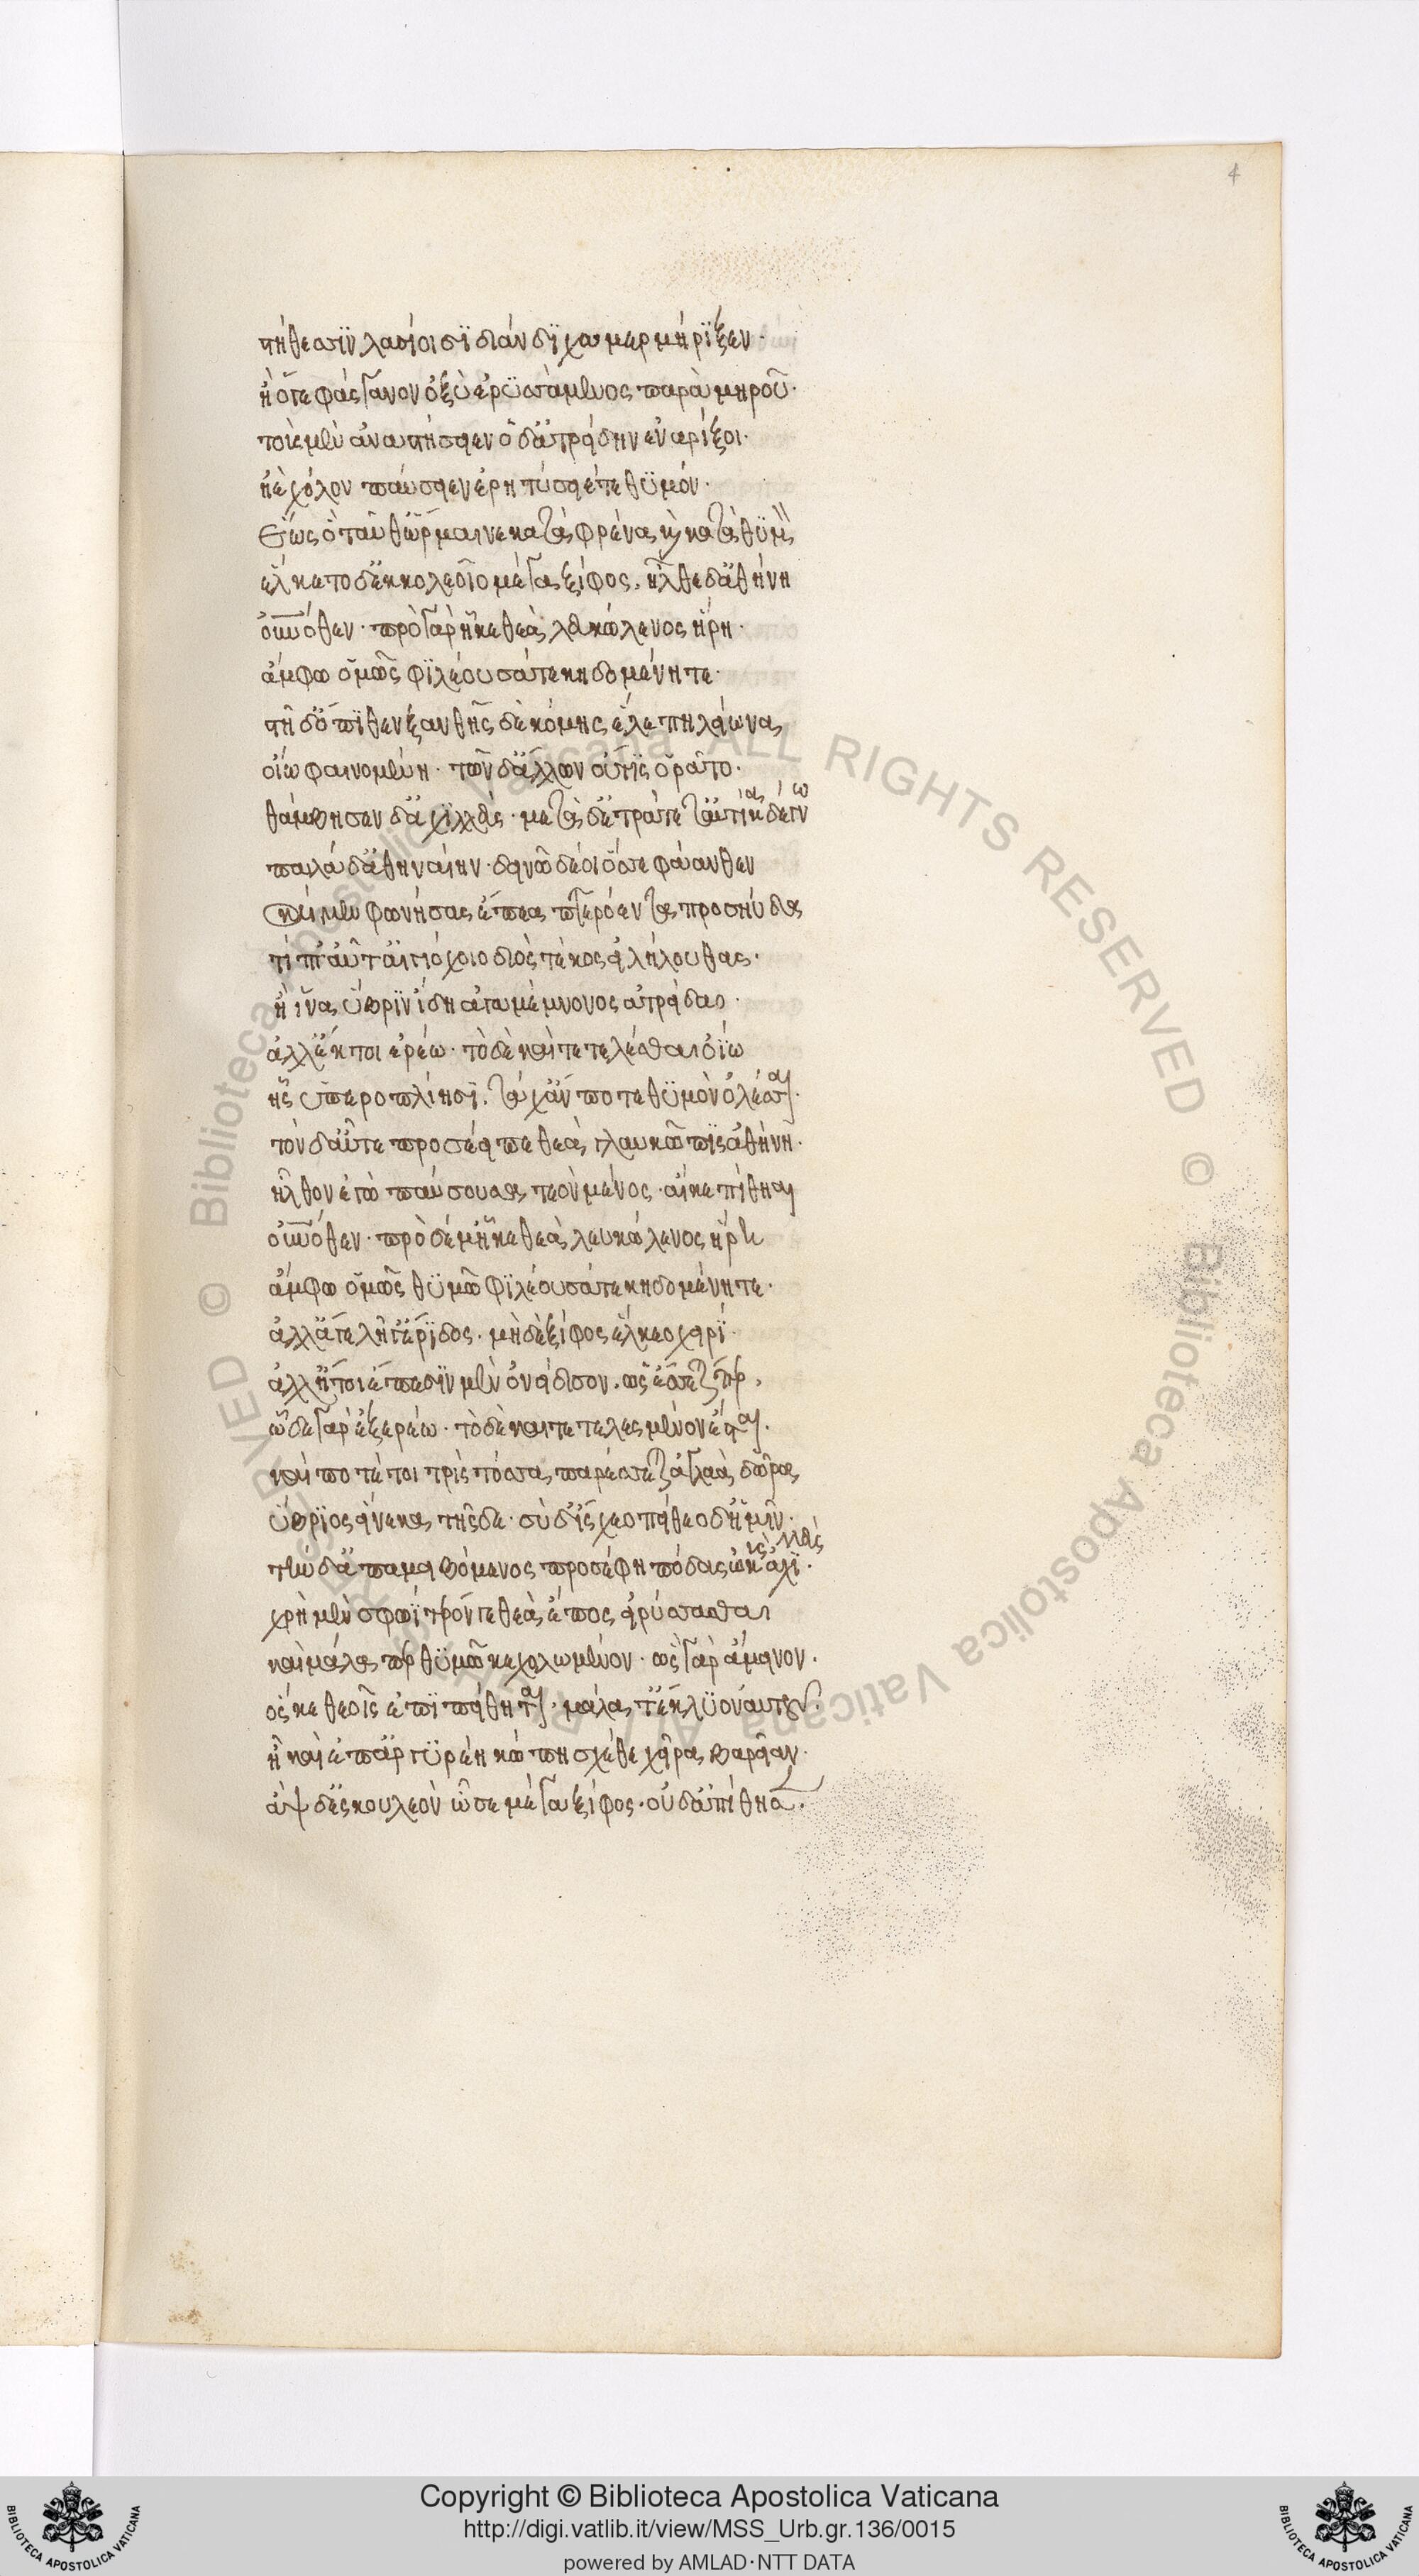 4
στήθεσσϊν λασίοισϊ διάνδϊχα μερμήρϊξεν·
ἢ ὅγε φάσγανον ὀξὺ ἐρϋσσάμενος παρὰ μηροῦ·
τοὺς μὲν ἀναστήσειεν ὃ δ' ἀτρείδην ἐναρίξοι·
ἠὲ χόλον παύσειεν ἐρητύσειέ τε θϋμόν·
Ἕως ὃ ταῦθ' ὥρμαινε κατὰ φρένα κ̀ κατὰ θϋμὸν
ἕλκετο δ' ἐκ κολεοῖο μέγα ξίφος. ἦλθε δ' ἀθήνη
οὐνόθεν· πρὸ γὰρ ἧκε θεὰ λευκώλενος ἥρη·
ἄμφω ὁμῶς φϊλέουσά τε κηδομένη τε·
στῆ δ' ὄπϊθεν ξανθῆς δὲ κόμης ἕλε πηλείωνα
οἴω φαινομένη· τῶν δ' ἄλλων οὔτϊς ὁρᾶτο·
θάμβησεν δ' ἀχϊλλεὺς· μετὰ δ' ἐτράπετ' αὐτίκα δ' ἔγνω
παλλάδ' ἀθηναίην· δεινὼ δέ οἱ ὄσσε φάανθεν
Καί μιν φωνήσας ἔπεα πτερόεντα προσηύδα
τί πτ' αὖτ' αἰγιόχοιο διὸς τέκος εἰλήλουθας·
ἢ ἵνα ὕβρϊν ἴδη ἀγαμέμνονος ἀτρείδαο·
ἀλλ' ἔκ τοι ἐρέω· τὸ δὲ καὶ τετελέσθαι ὀΐω
ἧς ὑπεροπλίησϊ. τάχ' ἄν ποτε θϋμὸν ὀλέσσαι·
τὸν δ' αὖτε προσέειπε θεὰ γλαυκῶπϊς ἀθήνη·
ἦλθον ἐγὼ παύσουσα τεὸν μένος· αἴκε πίθηαι
οὐνόθεν· πρὸ δέ μ' ἧκε θεὰ λευκώλενος ἥρη
ἄμφω ὁμῶς θϋμῶ φϊλέουσά τε κηδομένη τε·
ἀλλ' ἄγε λῆγ' ἔρϊδος· μηδὲ ξίφος ἕλκεο χειρί·
ἀλλ' ἤτοι ἔπεσϊν μὲν ὀνείδισον. ὡς ἔσεταί περ.
ὧδε γὰρ ἐξερέω· τὸ δὲ καὶ τετελεσμένον ἔσται.
καί ποτέ τοι τρὶς τόσσα παρέσσεται ἀγλαὰ δῶρα
ὕβρϊος εἵνεκα τῆσδε· σὺ δ' ἴσχεο πείθεο δ' ἡμῖν·
τὴν δ' ἀπαμειβόμενος προσέφη πόδας ὠκὺς ἀχιλλεύς·
χρὴ μὲν σφωΐτερόν γε θεὰ ἔπος εἰρύσσασθαι
καὶ μάλα περ θϋμῶ κεχολωμένον· ὡς γὰρ ἄμεινον·
ὅς κε θεοῖς ἐπϊπείθηται· μάλα τ' ἔκλϋον αὐτοῦ.
ἦ καὶ ἐπ' ἀργϋρέη κώπη σχέθε χεῖρα βαρεῖαν·
ἂψ δ' ἐς κουλεὸν ὦσε μέγα ξίφος· οὐδ' ἀπίθησε.
© Biblioteca Apostolica Vaticana ALL RIGHTS RESERVED © Biblioteca Apostolica Vaticana ALL RIGHTS RESERVED
Copyright © Biblioteca Apostolica Vaticana
http://digi.vatlib.it/view/MSS_Urb.gr.136/0015
powered by AMLAD·NTT DATA
BIBLIOTECA APOSTOLICA VATICANA
BIBLIOTECA APOSTOLICA VATICANA